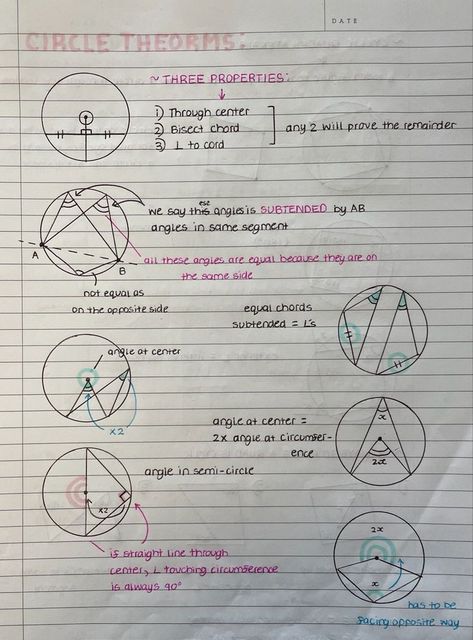 DATE
CIRCLE THEORMS:
~ THREE PROPERTIES:
1) Through center
2) Bisect chord
3) L to cord
any 2 will prove the remainder
we say this ese angles is SUBTENDED by AB
angles in same segment
A
B
all these angles are equal because they are on
the same side
not equal as
on the opposite side
equal chords
subtended = L's
=
H
angle at center
x2
angle at center =
2x angle at circumfer-
ence
x
2x
angle in semi-circle
x2
is straight line through
center, L touching circumference
is always 90°
2x
x
has to be
facing opposite way